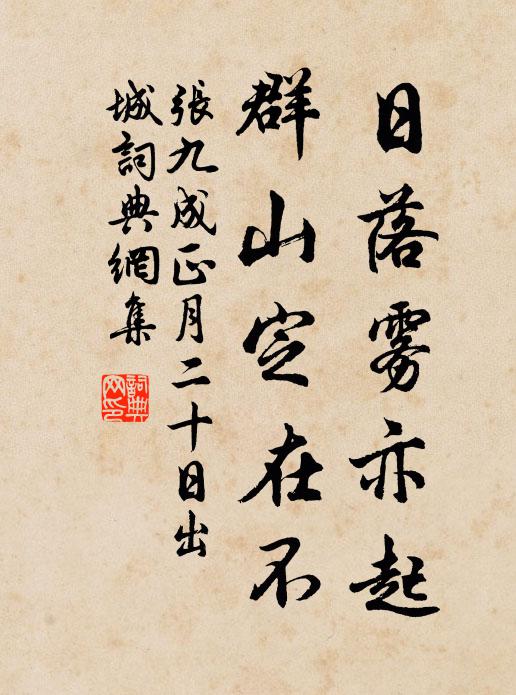 日落雾亦起
群山定在不
張九成正月二十日出
城詞典網集
詞典
网印